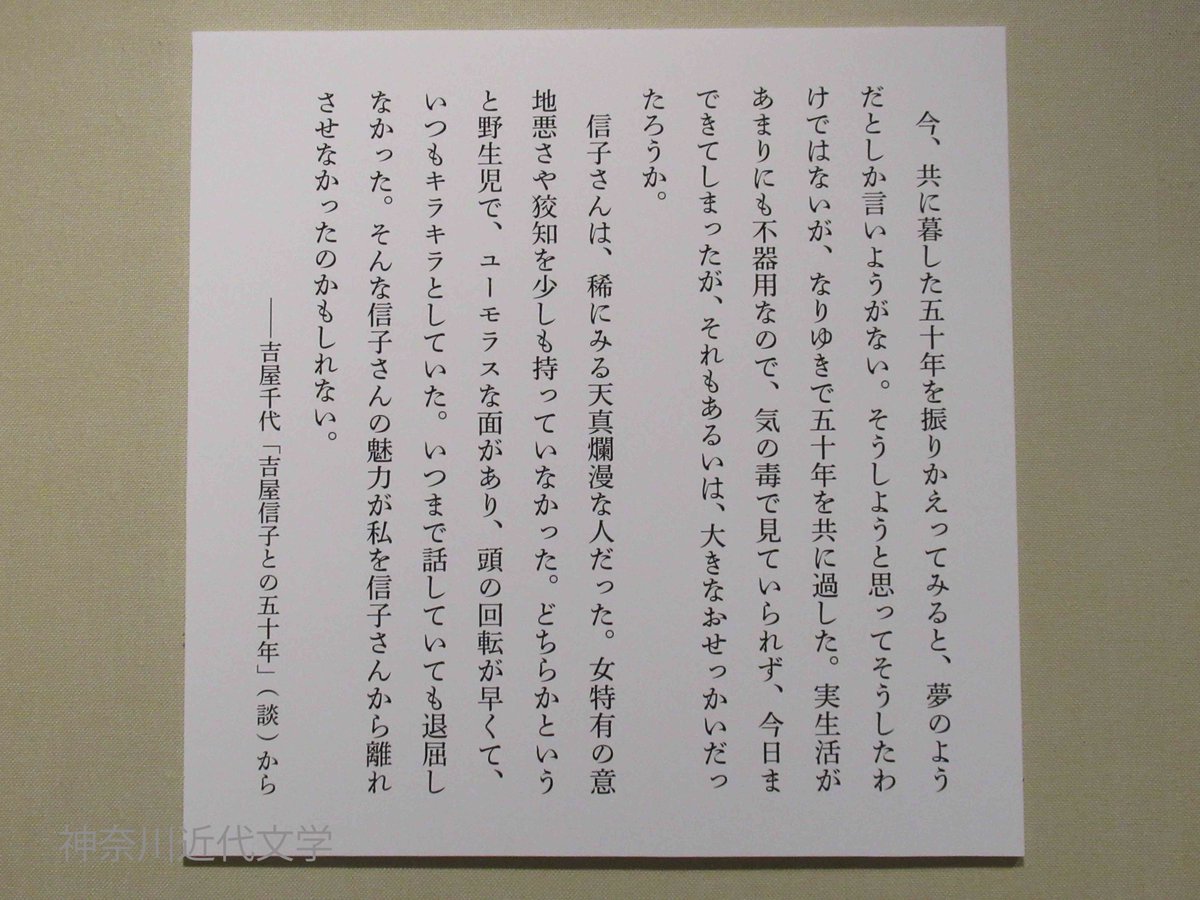 今、共に暮した五十年を振りかえってみると、夢のよう
だとしか言いようがない。そうしようと思ってそうしたわ
けではないが、なりゆきで五十年を共に過した。実生活が
あまりにも不器用なので、気の毒で見ていられず、今日ま
でできてしまったが、それもあるいは、大きなおせっかいだっ
たろうか。
信子さんは、稀にみる天真爛漫な人だった。女特有の意
地悪さや狡知を少しも持っていなかった。どちらかという
と野生児で、ユーモラスな面があり、頭の回転が早くて、
いつもキラキラとしていた。いつまで話していても退屈し
なかった。そんな信子さんの魅力が私を信子さんから離れ
させなかったのかもしれない。
――吉屋千代「吉屋信子との五十年」（談）から
神奈川近代文学